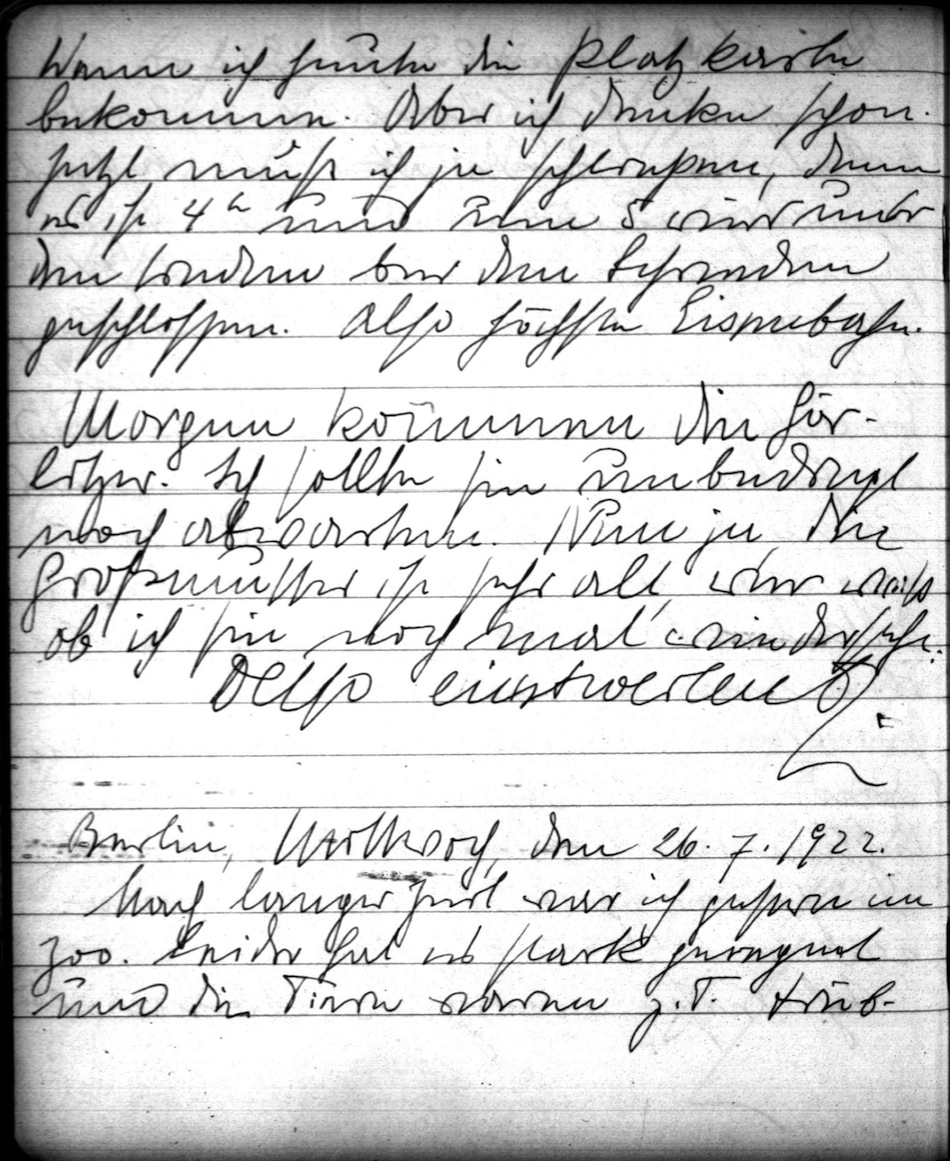 Wenn ich heute die Platzkarte
bekomme. Aber ich denke schon.
Jetzt muß ich ja schließen, denn
es ist 4 h und um 5 wird
der den
geschlossen. Also höchste Eisenbahn.
Morgen kommen die Gör-
litzer. Ich sollte sie unbedingt
noch abwarten. Nun ja, die
Großmutter ist sehr alt, wer weiß
ob ich sie noch mal wiedersehe.
Also einstweilen
Berlin, Mittwoch, den 26.7.1922.
Nach langer Zeit war ich gestern im
Zoo. Leider hat es stark geregnet
und die Tiere waren z.T. trüb-